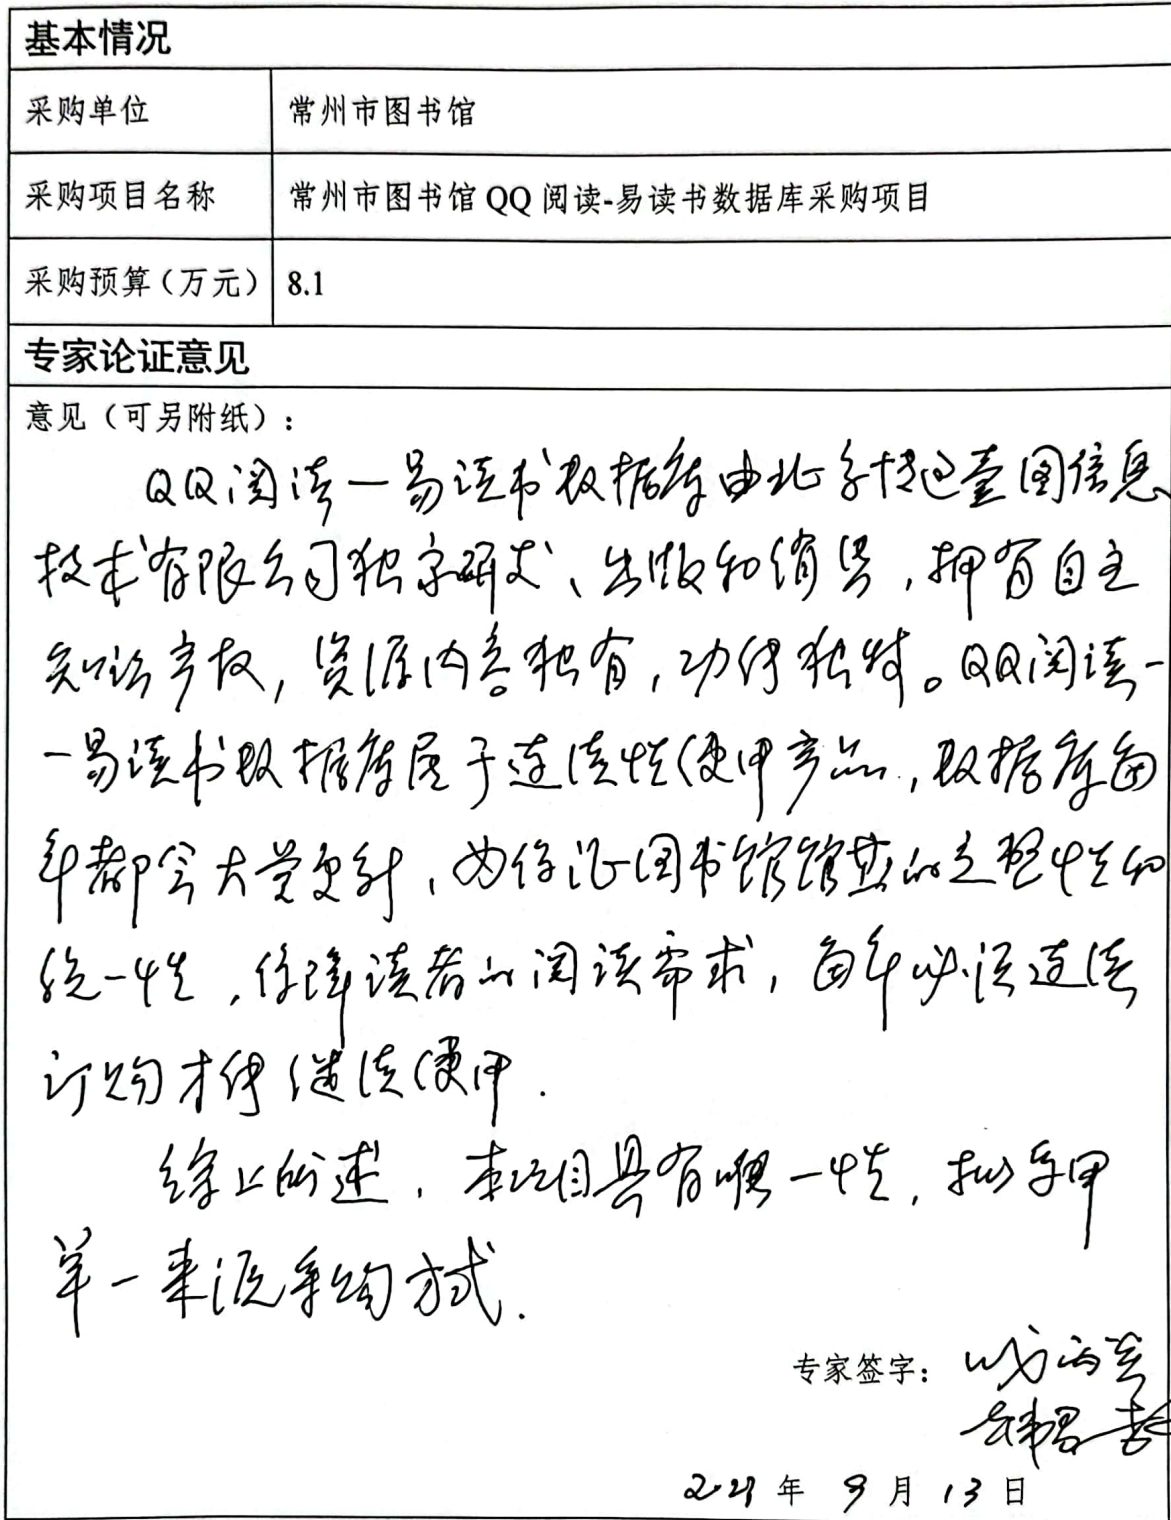 基本情况
采购单位 常州市图书馆
采购项目名称 常州市图书馆 QQ 阅读-易读书数据库采购项目
采购预算（万元） 8.1
专家论证意见
意见（可另附纸）：
QQ阅读一易读书数据库由北京 图信息
技术有限公司独家研发、出版和销售，拥有自主
知识产权，资源内容独有，功能独特。QQ阅读-
-易读书数据库属于连续性使用产品，数据库每
年都会大量更新，为保证图书馆馆藏的完整性和
统一性，保障读者的阅读需求，每年必须连续
订购才能继续使用.
综上所述，本项目具有唯一性，拟采用
单一来源采购方式.
专家签字：
年 9 月 13 日